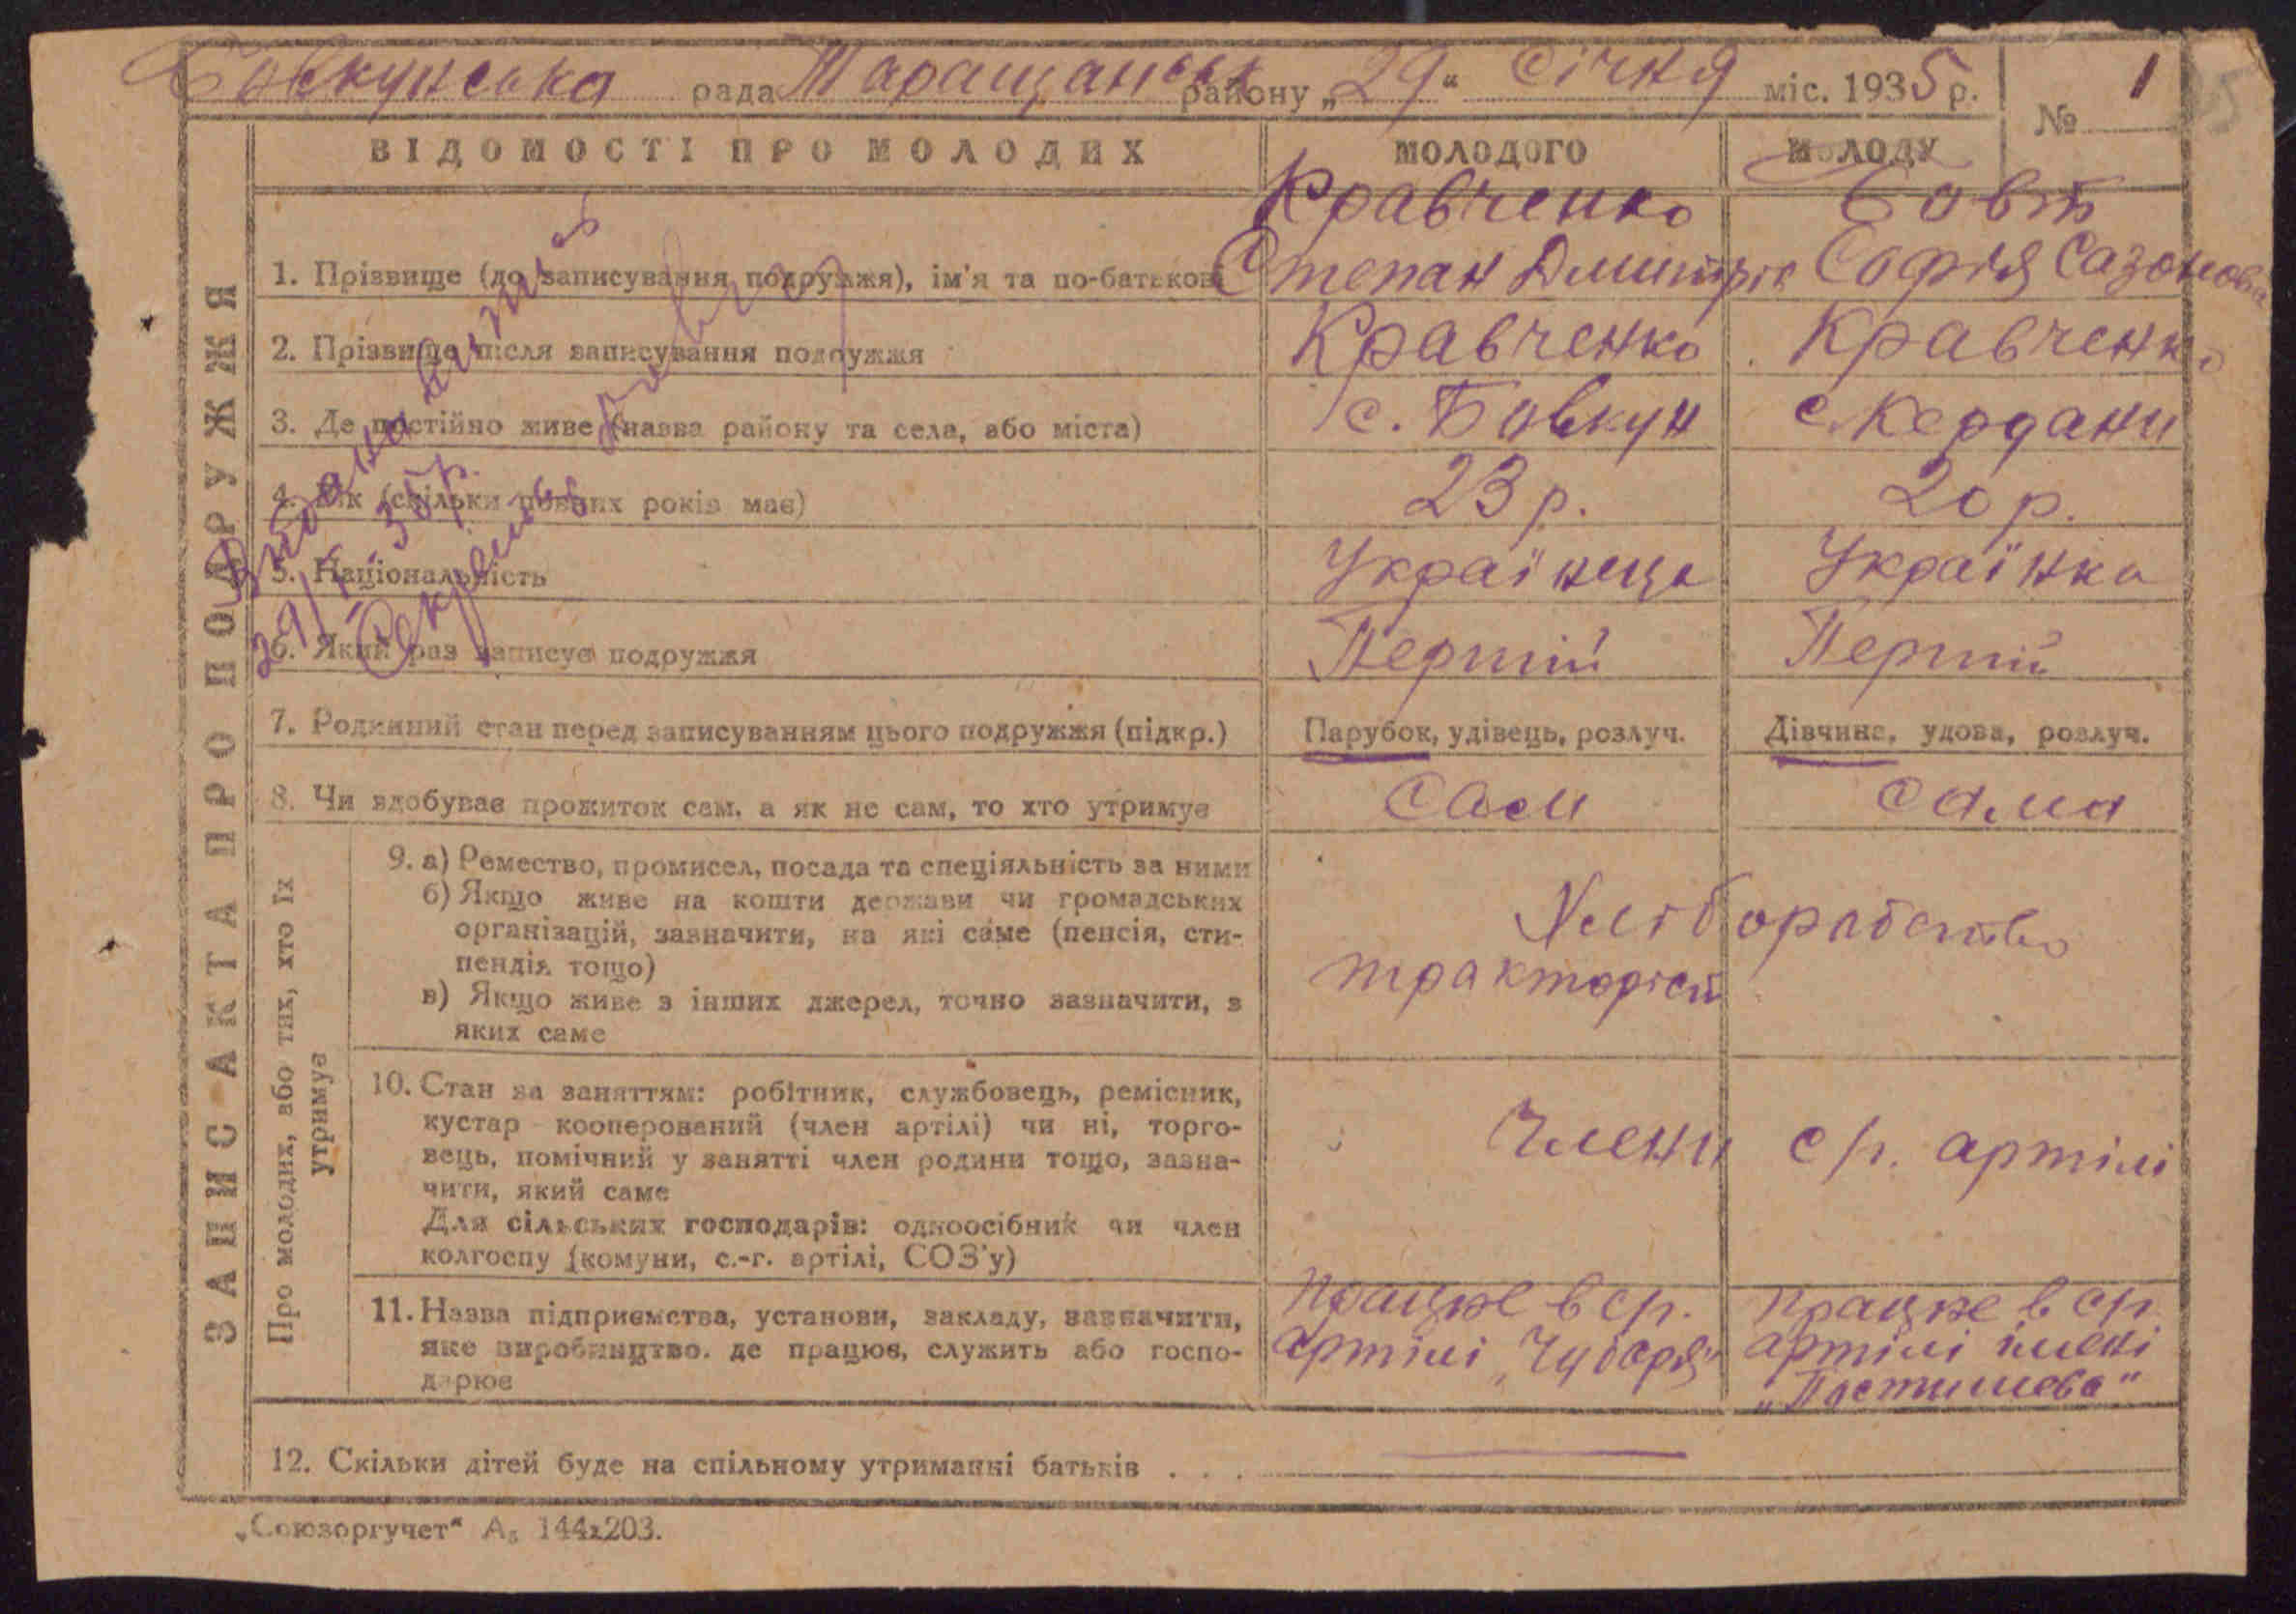 Бовкунська рада Таращанськ району „29“ Січня міс. 1935 р. № 1
25
ЗАПИС АКТА ПРО ПОДРУЖЖЯ
ВІДОМОСТІ ПРО МОЛОДИХ МОЛОДОГО МОЛОДУ
Кравченко Бовт
1. Прізвище (до записування подружжя), ім'я та по-батькові Степан Дмитрів Софія Сазонова
2. Прізвище після записування подружжя Кравченко Кравченко
3. Де постійно живе (назва району та села, або міста) с. Бовкун с. Кердани
4. Вік (скільки повних років має) 23 р. 20 р.
5. Національність Українець Українка
6. Який раз записує подружжя Перший Перший
7. Родинний стан перед записуванням цього подружжя (підкр.) Парубок, удівець, розлуч. Дівчина, удова, розлуч.
8. Чи здобуває прожиток сам, а як не сам, то хто утримує сам сама
Про молодих, або тих, хто їх утримує
9. а) Ремество, промисел, посада та спеціяльність за ними
б) Якщо живе на кошти держави чи громадських
організацій, зазначити, на які саме (пенсія, сти-
пендія тощо)
в) Якщо живе з інших джерел, точно зазначити, з
яких саме
Хліборобство
тракторіст
10. Стан за заняттям: робітник, службовець, ремісник,
кустар кооперований (член артілі) чи ні, торго-
вець, помічний у занятті член родини тощо, зазна-
чити, який саме
Для сільських господарів: одноосібник чи член
колгоспу (комуни, с.-г. артілі, СОЗ'у)
Члени с/г. артілі
11. Назва підприємства, установи, закладу, зазначити,
яке виробництво, де працює, служить або госпо-
дарює
Працює в с/г.
артілі „Чубаря“
Працює в с/г
артілі імені
„Постишева“
12. Скільки дітей буде на спільному утриманні батьків . . .
„Союзоргучет“ А₅ 144х203.